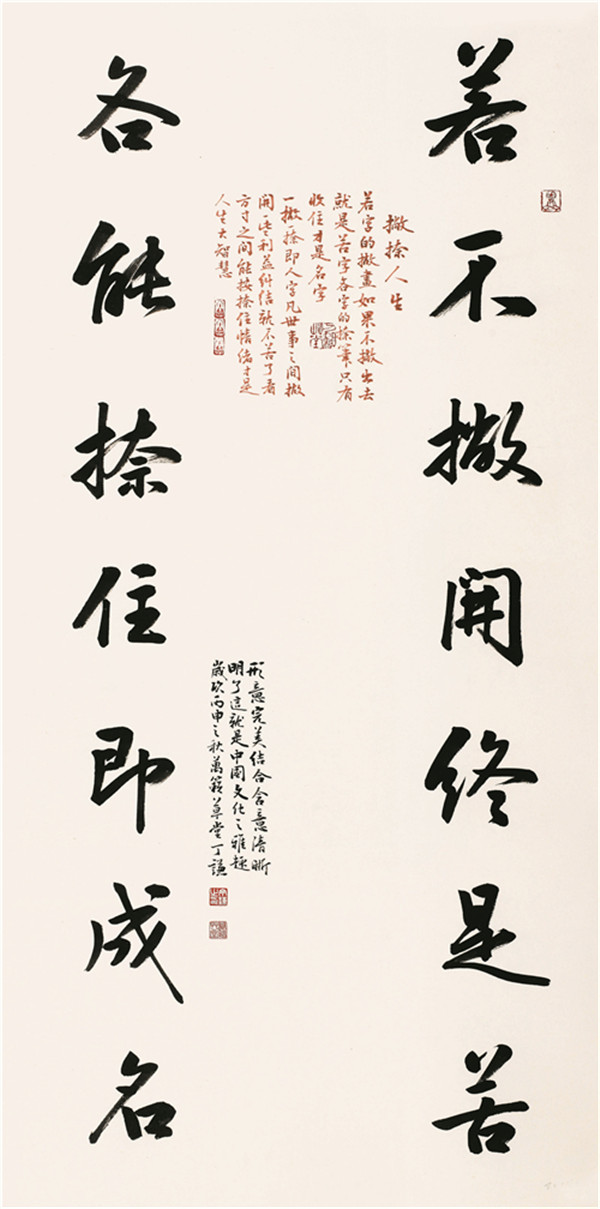 若不撇開終是苦
各能捺住即成名
撇捺人生
若字的撇畫如果不撇出去
就是苦字各字的捺筆只有
收住才是名字
一撇一捺即人字凡世事之間撇
開些利益糾結就不苦了看
方寸之間能按捺住情緒才是
人生大智慧
形意完美结合含意清晰
明了這就是中國文化之雅趣
歲次丙申之秋萬籟草堂丁謙